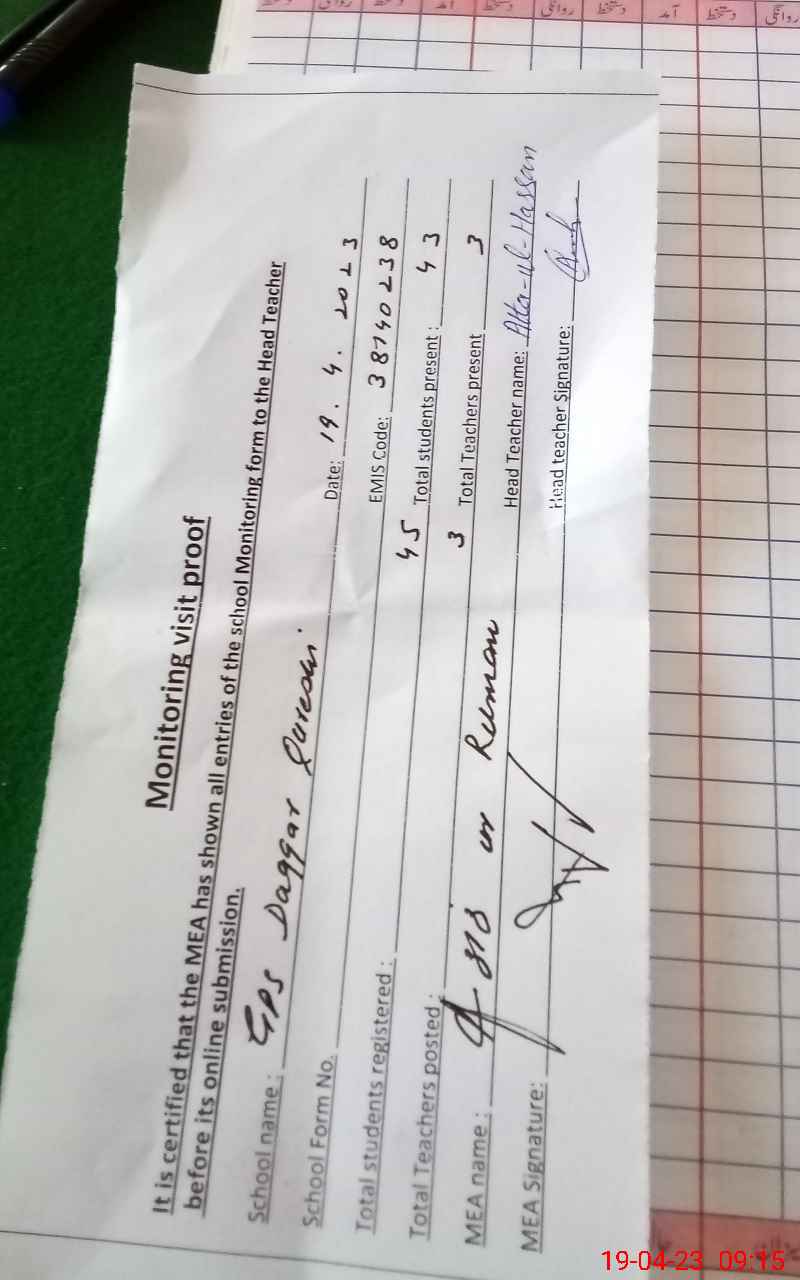 دستخط آمد دستخط روانگی دستخط آمد دستخط روانگی
Monitoring visit proof
It is certified that the MEA has shown all entries of the school Monitoring form to the Head Teacher
before its online submission.
School name : GPS Daggar Qureshi Date: 19. 4. 2023
School Form No. EMIS Code: 38740238
Total students registered : 45 Total students present : 43
Total Teachers posted : 3 Total Teachers present 3
MEA name : Rehman Head Teacher name: Atta-ul-Hassan
MEA Signature: Head teacher Signature:
19-04-23 09:15